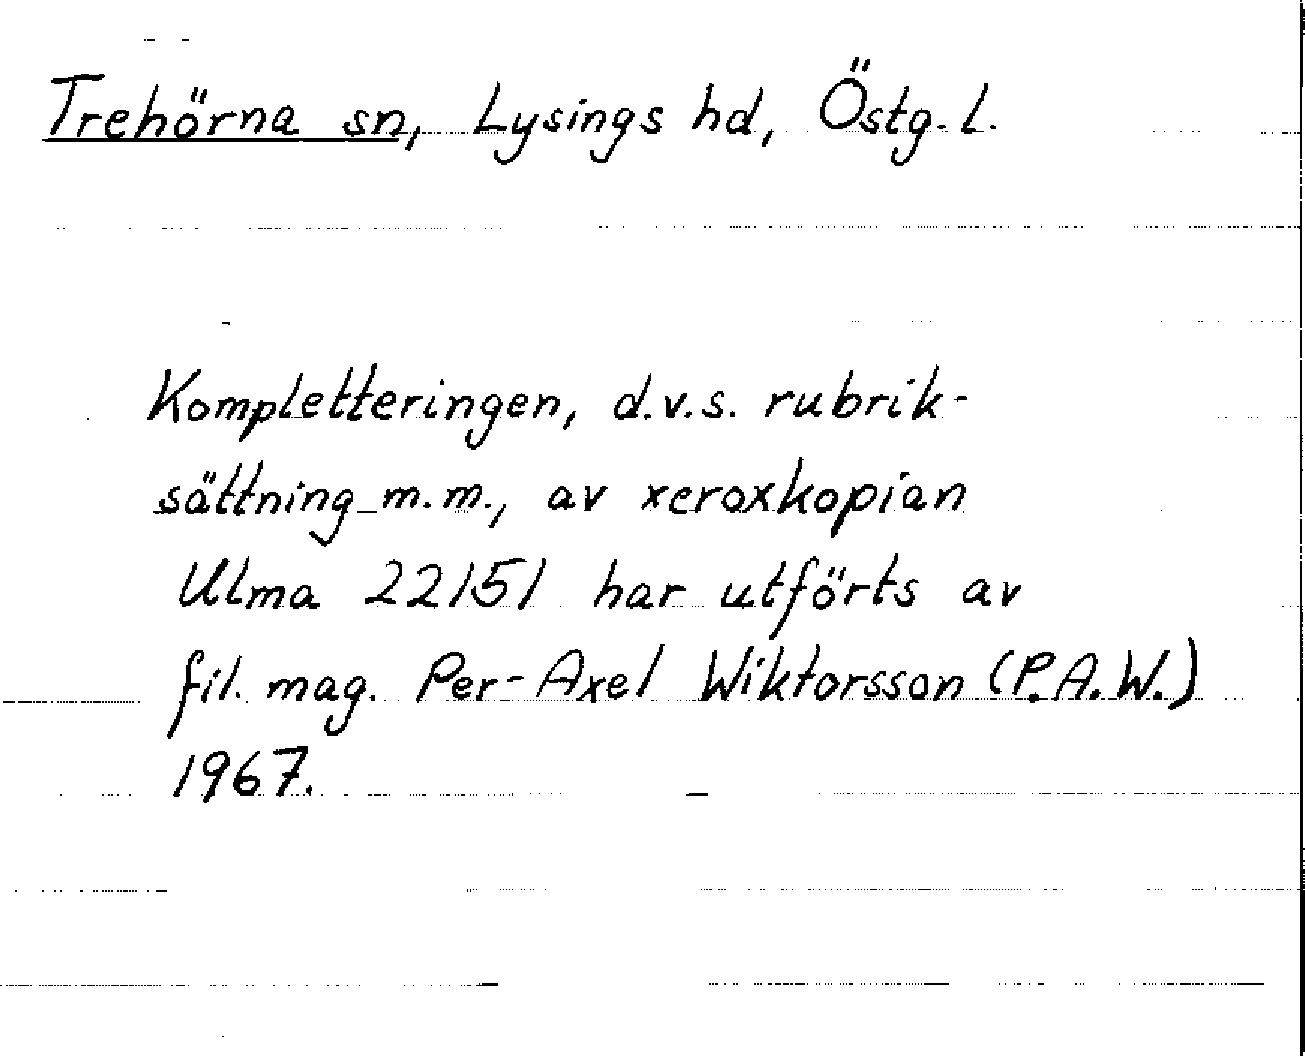 Trehörna sn, Lysings hd, Östg. l.
Kompletteringen, d.v.s. rubrik-
sättning m.m., av xeroxkopian
Ulma 22151 har utförts av
fil. mag. Per-Axel Wiktorsson (P.A.W.)
1967.